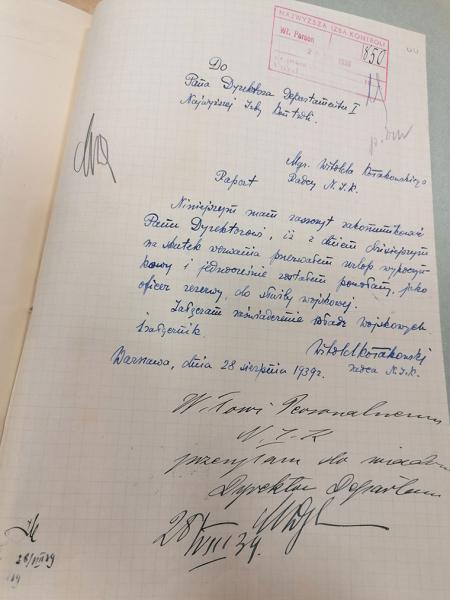 NAJWYŻSZA IZBA KONTROLI
Wł. Person
850
Do
Pana Dyrektora Departamentu I
Najwyższej Izby Kontroli.
Mgr. Witolda Kołakowskiego
Radcy N.I.K.
Raport
Niniejszym mam zaszczyt zakomunikować
Panu Dyrektorowi, iż z dniem dzisiejszym
na skutek wezwania przerwałem urlop wypoczyn-
kowy i jednocześnie zostałem powołany, jako
oficer rezerwy, do służby wojskowej.
Załączam zaświadczenie władz wojskowych.
1 załącznik.
Witold Kołakowski
radca N.I.K.
Warszawa, dnia 28 sierpnia 1939 r.
Personalnemu
N.I.K
przesyłam do wiadom
Dyrektor Departam
28/VIII 39.
28/VIII 39